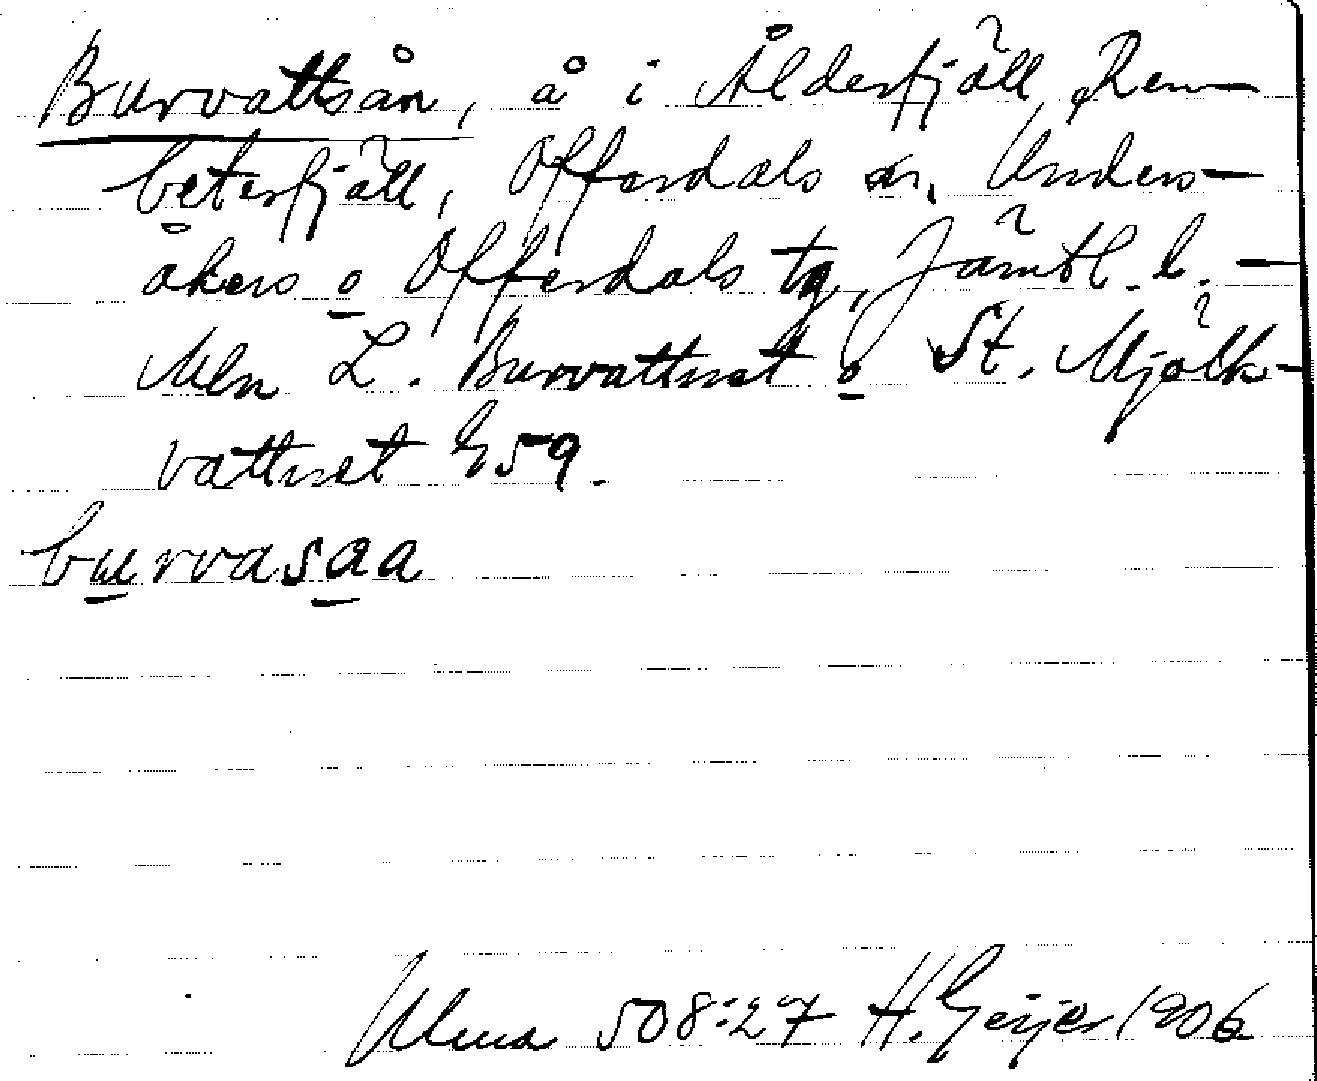 Burvattsån, å i Ålderfjäll, Ren-
beterfjäll, Offerdals sn, Unders-
åkers o Offerdals tg, Jämtl. l. –
Mln L. Burvattnet o St. Mjölk-
vattnet G59.
burvasaa
Uma 508:27 H. Geijer 1906